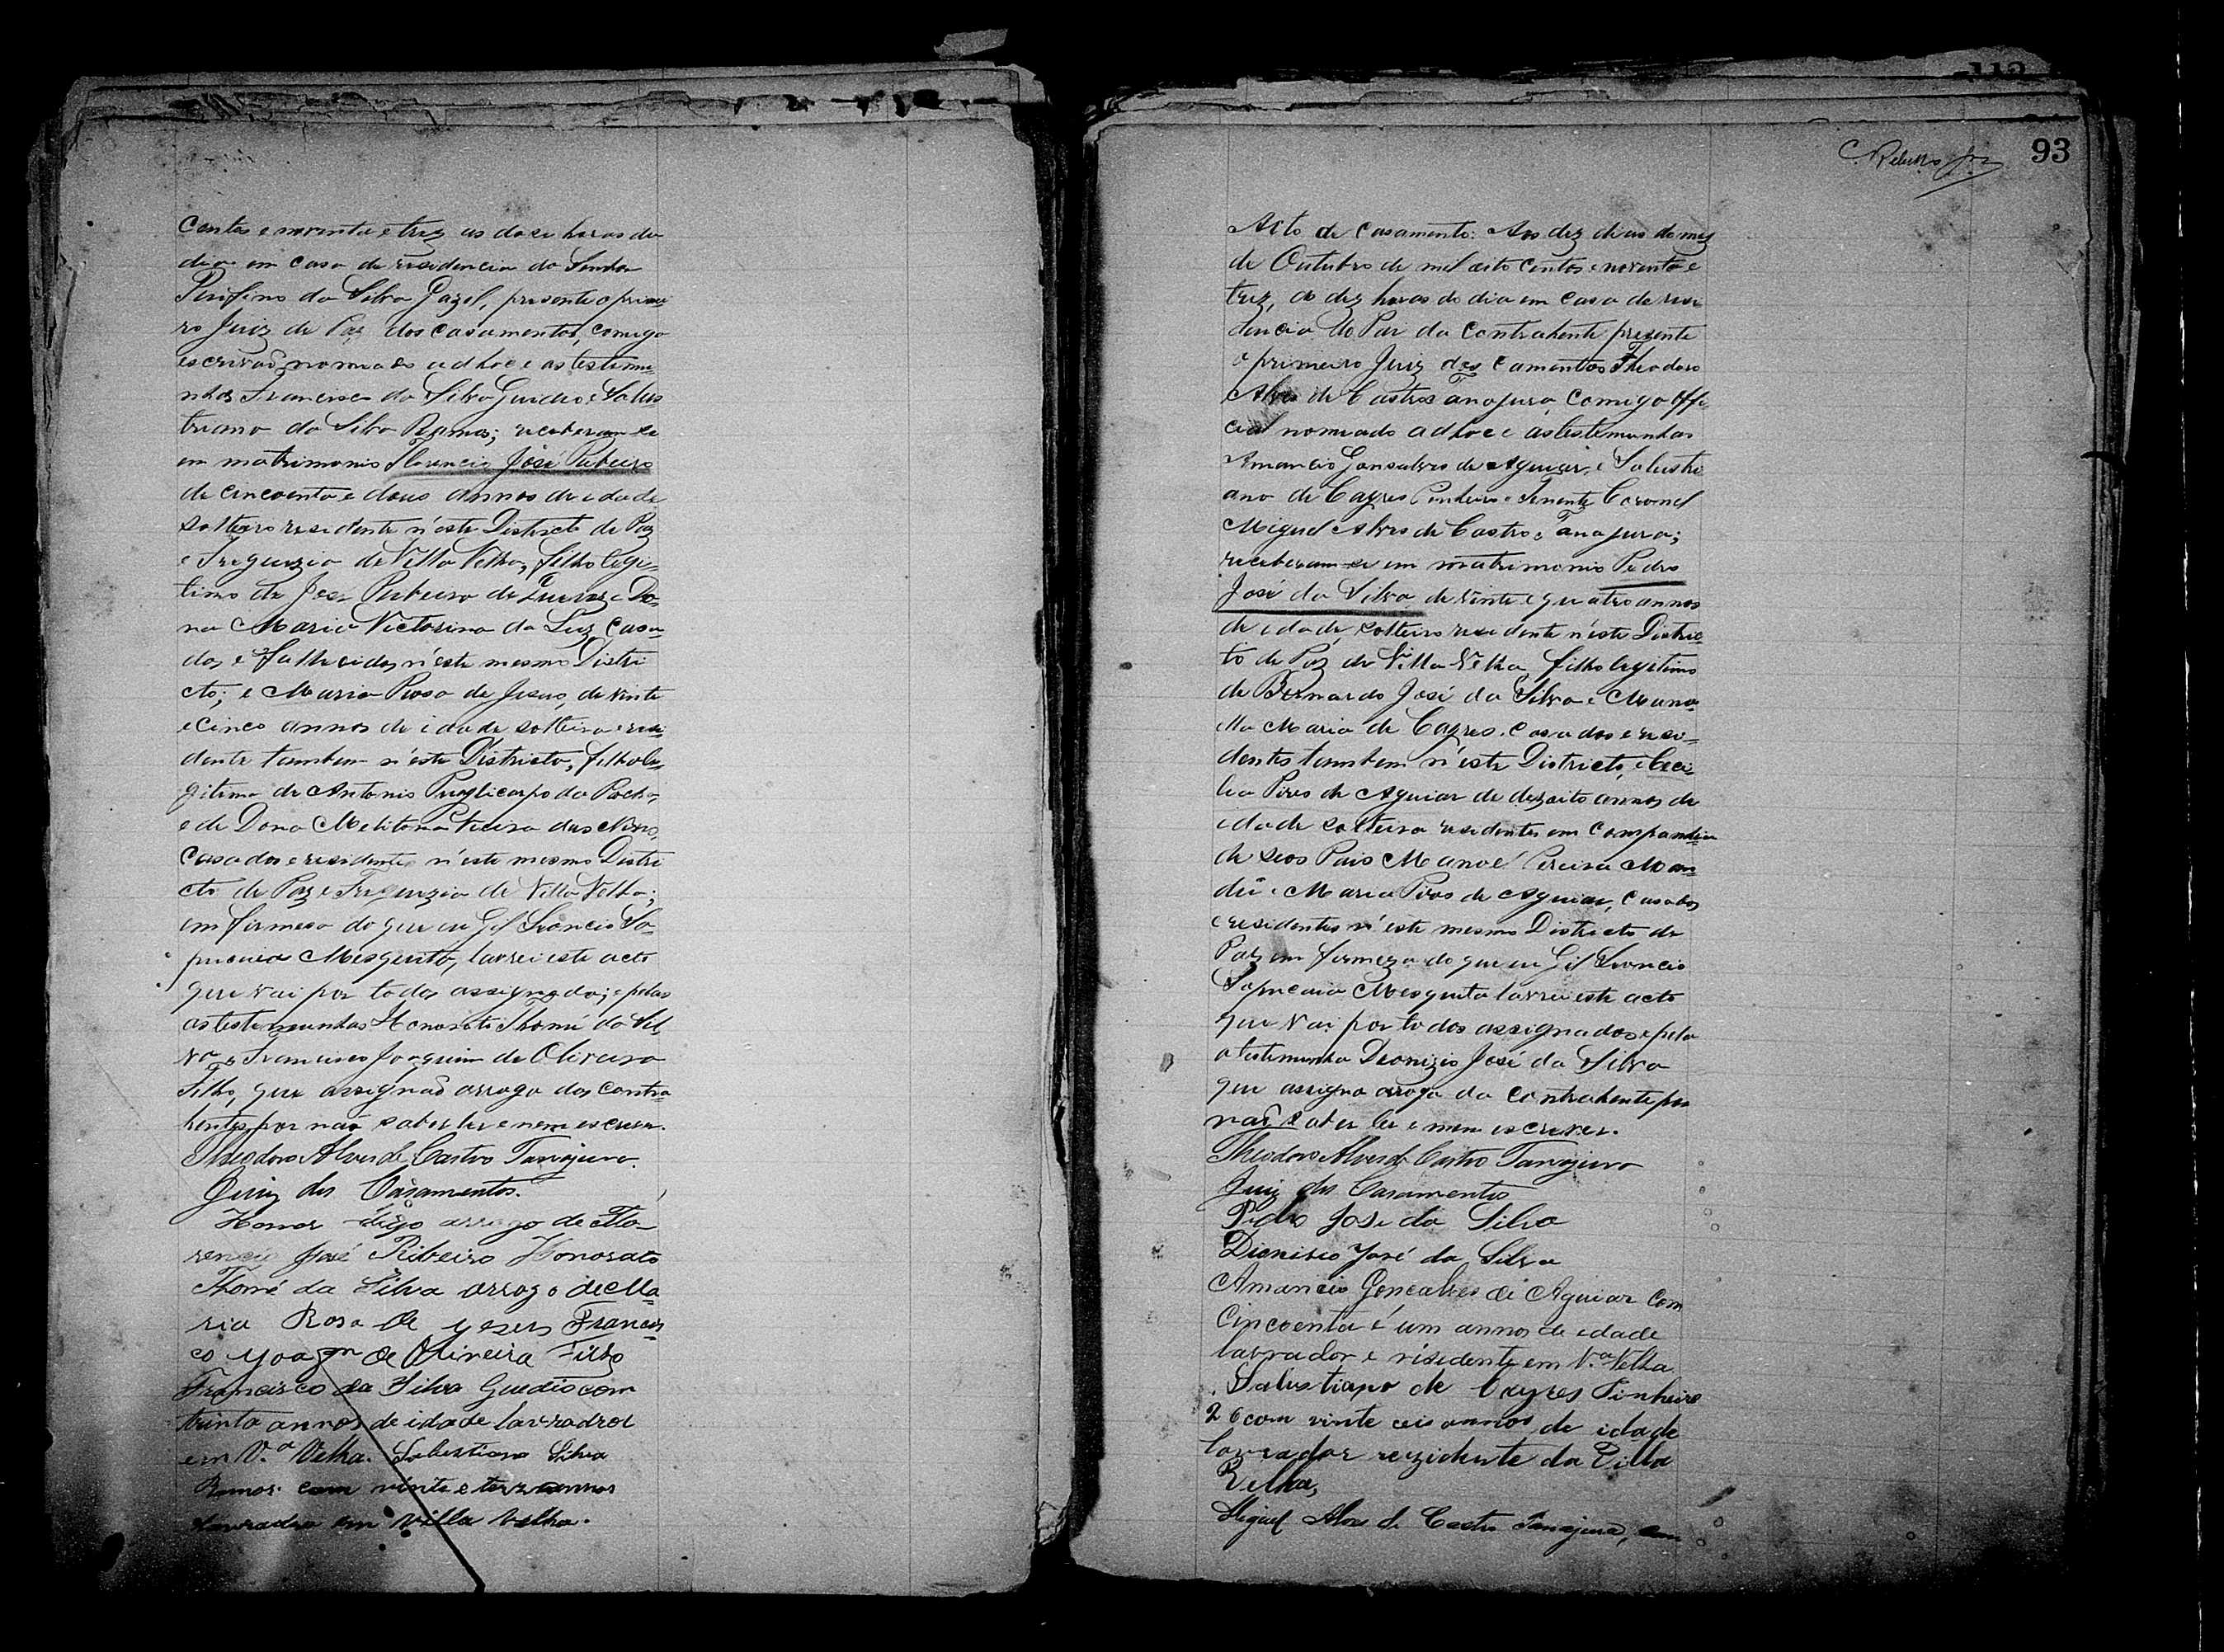 centos e noventa e trez as doze horas do
dia em casa de residencia do Senhor
da Silva Gazel, presente o primei
ro Juiz de Paz dos casamentos, comigo
escrivaõ nomiado adhoc e as testimu=
nhas Francisco da Silva Guedes e Salus
triano da Silva Ramos; receberam se
em matrimonio Florencio José Ribeiro
de cincoenta e dous annos de idade
solteiro residente n'este Districto de Paz
e Freguezia de Villa Velha, filho legi=
timo de José Ribeiro de e Do=
na Maria Victorina da Luz, casa=
dos e fallecidos n'este mesmo Distri
cto; e Maria Rosa de Jesus, de vinte
e cinco annos de idade solteira e resi
dente tambem n'este Districto, filha le=
gitima de Antonio da Rocha,
e de Dona Melitona Vieira das Neves,
casados e residentes n'este mesmo Distri
cto de Paz e Freguezia de Villa Velha;
em firmesa do que eu Gil Leoncio Sa=
pucaia Mesquita, lavrei este acto
que vai por todos assignado; e pelas
as testemunhas Honorato Thomé da Sil
va e Francisco Joaquim de Oliveira
Filho, que assignaõ arrogo dos contra
hentes por naõ saber ler e nem escrever.
Theodoro Alves de Castro Tanajura.
Juiz dos Casamentos.
Honor digo arrogo de Flo
rencio José Ribeiro Honorato
Thomé da Silva arrogo de Ma=
ria Rosa de yesus Francis
co yoaqm de Oliveira Filho
Francisco da Silva Guedis com
trinta annos de idade lavrador
em Va. Velha. Salustiano Silva
Ramos com vinte e trez annos
Lavrador em Villa Velha.
93
Acto de casamento: Aos dez dias do mez
de Outubro de mil oito centos e noventa e
trez, as dez horas do dia em casa de resi
dencia do Pai da contrahente presente
o primeiro Juiz dos camentos Theodoro
Alves de Castro Tanajura, comigo offi
cial nomiado adhoc e as testemunhas
Amancio Gonsalves de Aguiar, e Salusti
ano de Cayres Pinheiro e Tenente Coronel
Miguel Alves de Castro e Tanajura;
receberam-se em matrimonio Pedro
José da Silva de vinte e quatro annos
de idade, solteiro residente n'este Distric=
to de Paz de Villa Velha filho legitimo
de Bernardo José da Silva e Mano
ella Maria de Cayres. Casados e resi=
dentes tambem n'este Districto, e Ceci=
lia Pires de Aguiar de dezoito annos de
idade solteira residentes em companhia
de seos Pais Manoel Pereira Man
du e Maria Pires de Aguiar, casados
e residentes n'este mesmo Districto de
Paz em firmeza do que eu Gil Leoncio
Sapucaia Mesquita lavrei este acto
que vai por todos assignados e pela
a testemunha Deonizio José da Silva
que assigna arrogo da contrahente por
naõ saber ler e nem escrever.
Theodoro Alves de Castro Tanajura
Juiz dos Casamentos
Pedro José da Silva
Dionisio José da Silva
Amancio Gonçalves de Aguiar com
Cincoenta é um annos de edade
lavrador e risedente em Va. Velha
Salustiano de Cayres Pinheiro
26 com vinte ceis annos de idade
lavrador rezidente da Villa
Velha,
Miguel Alves de Castro Tanajura, com